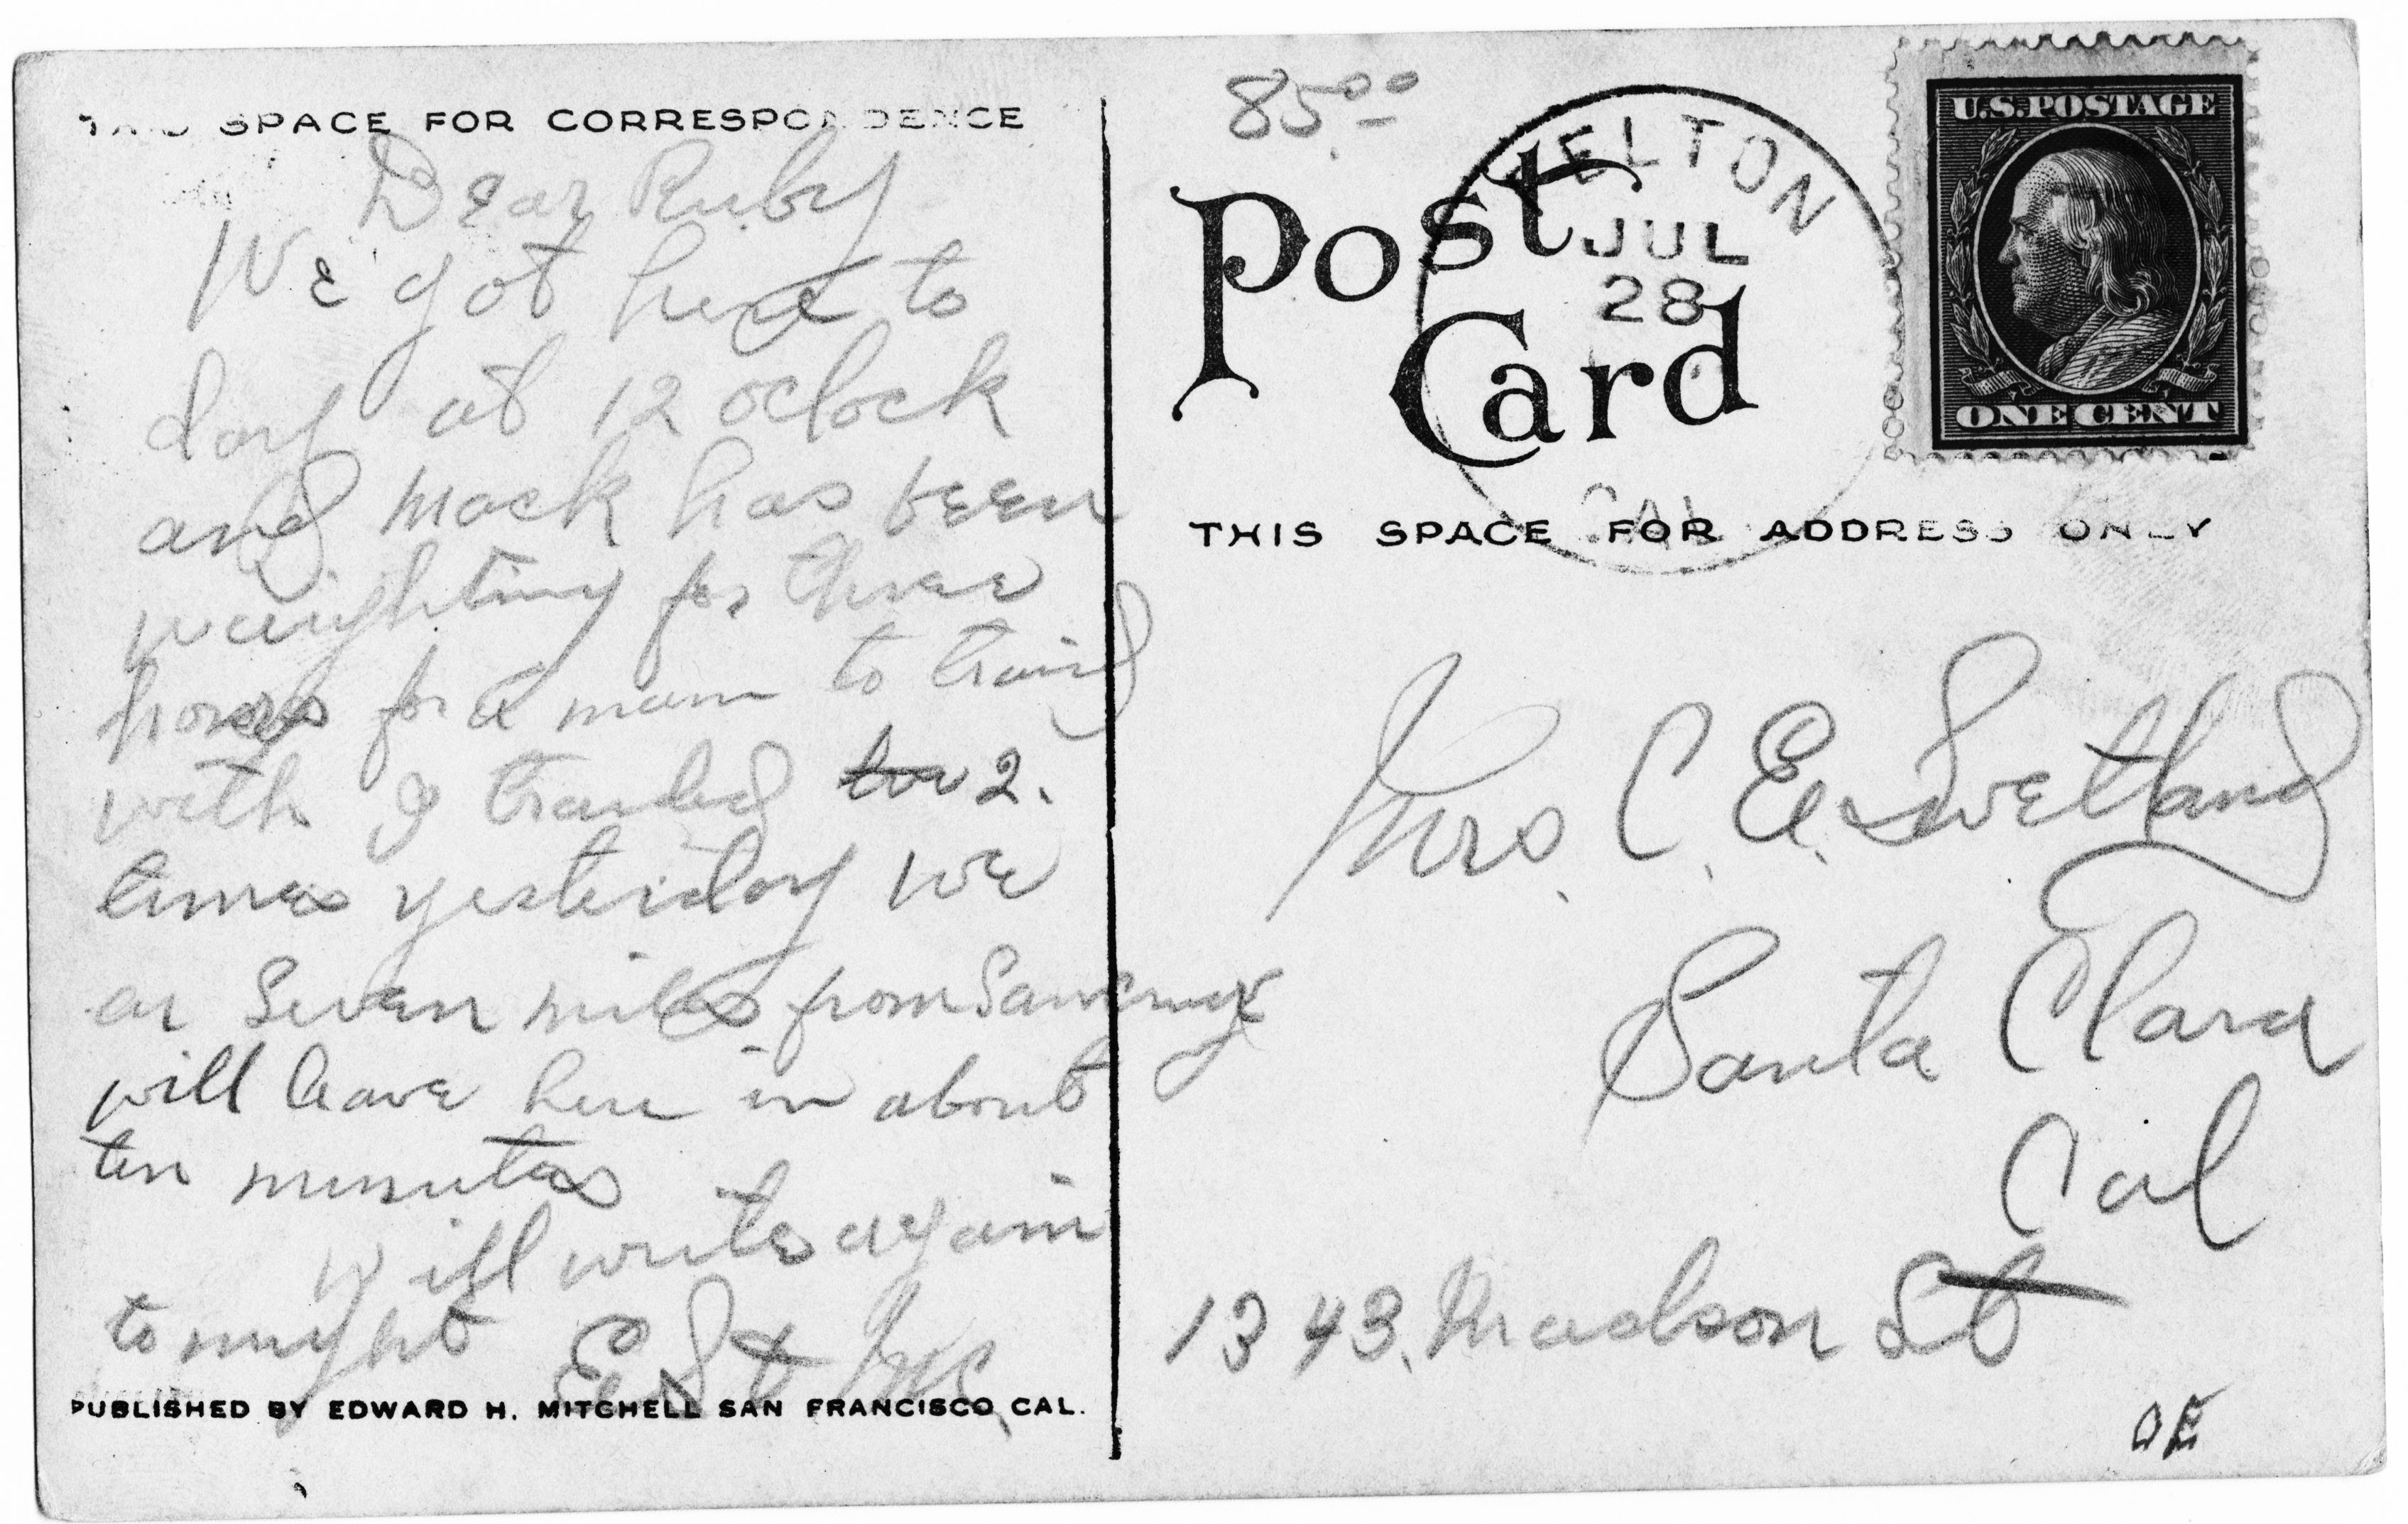 THIS SPACE FOR CORRESPONDENCE
Dear Ruby
We got here to
day at 12 oclock
and Mack has been
weighting for three
hours for a man to traid
with I traided 2.
times yesterday we
ar Seven miles from Sancruz
will leave here in about
ten minutes
Will write again
to night
PUBLISHED BY EDWARD H. MITCHELL SAN FRANCISCO, CAL.
85⁰⁰
Post
Card
FELTON
JUL
28
CAL
U.S. POSTAGE
ONE CENT
THIS SPACE FOR ADDRESS ONLY
Mrs. C. E. Swetland
Santa Clara
Cal
1343. Madson St